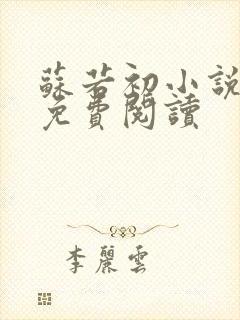 蘇若初小說
免費閱讀
李麗雲